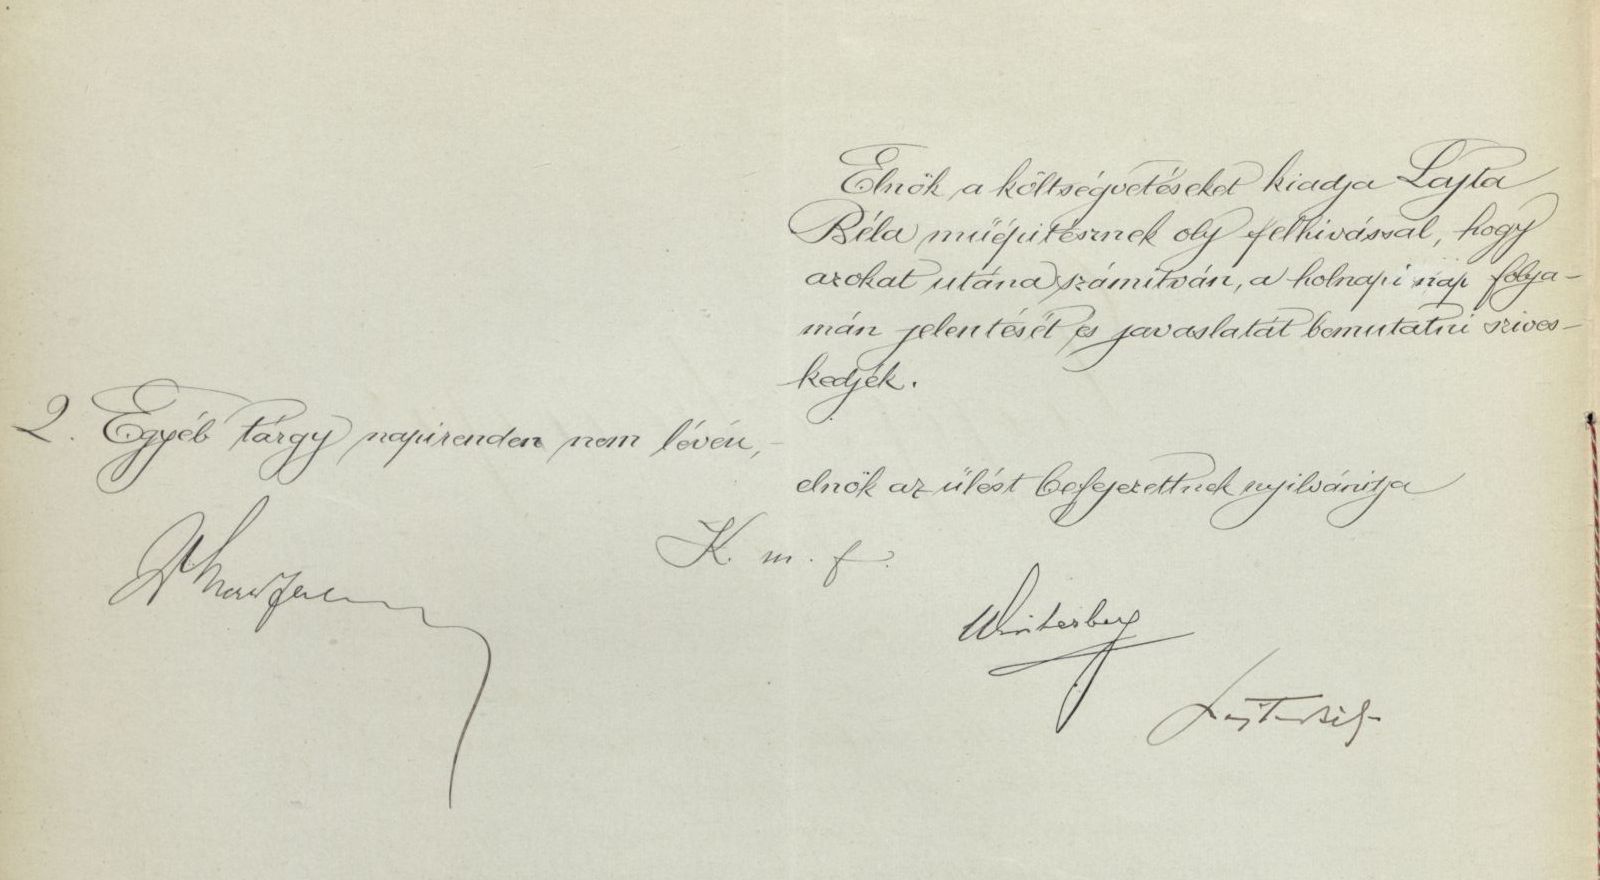 Elnök a költségvetéseket kiadja Lajta
Béla műépitésznek oly felhivással, hogy
azokat utána számitván, a holnapi nap folya-
mán jelentését és javaslatát bemutatni szives-
kedjék.
2. Egyéb tárgy napirenden nem lévén,-
elnök az ülést befejezettnek nyilvánitja
K. m. f.
Winterberg
Lajta Béla